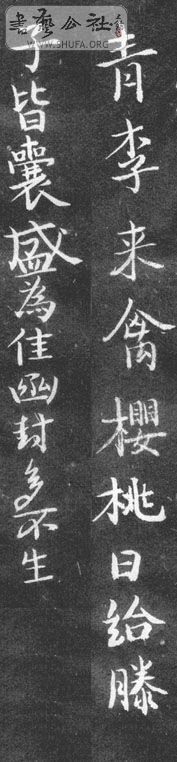 書藝公社
WWW.SHUFA.ORG
青李来禽櫻桃日給滕
子皆囊盛為佳函封多不生